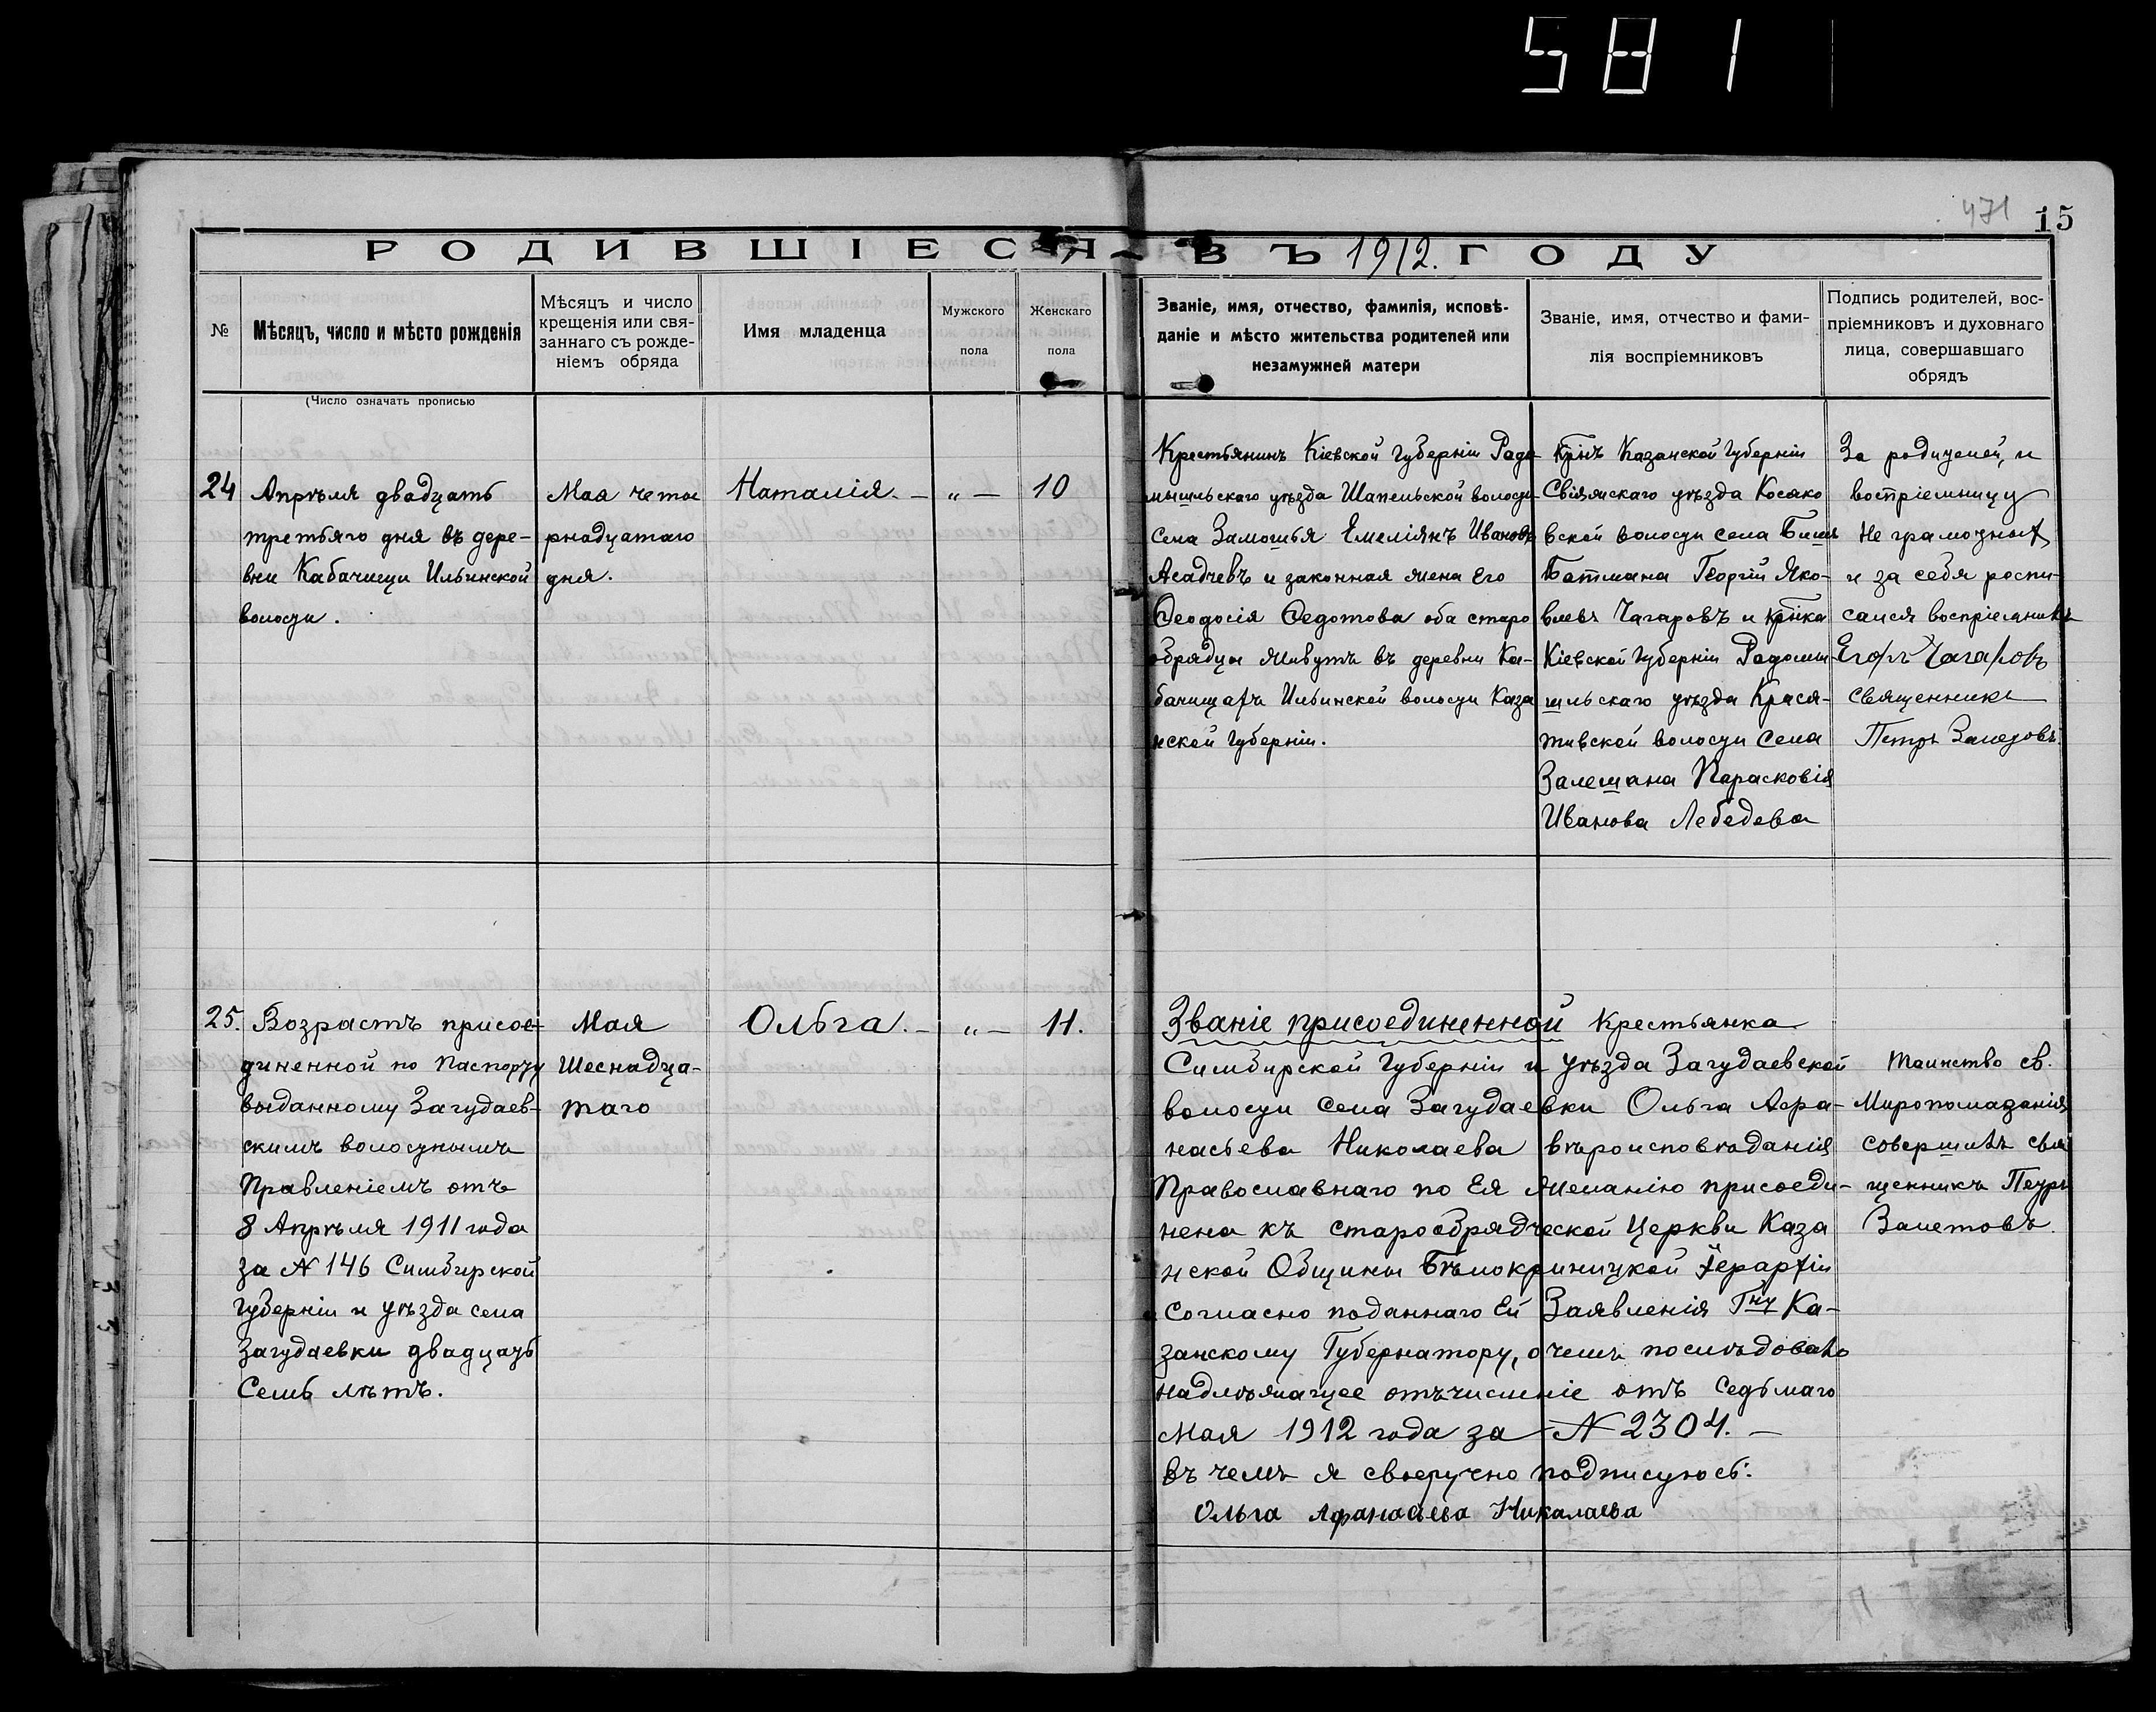 581
471 15
РОДИВШІЕСЯ ВЪ 1912. ГОДУ
№
Мѣсяцъ, число и мѣсто рожденія
Мѣсяцъ и число
крещенія или свя-
заннаго съ рожде-
ніемъ обряда
Имя младенца
Мужского
пола
Женскаго
пола
Званіе, имя, отчество, фамилія, исповѣ-
даніе и мѣсто жительства родителей или
незамужней матери
Званіе, имя, отчество и фами-
лія воспріемниковъ
Подпись родителей, вос-
пріемниковъ и духовнаго
лица, совершавшаго
обрядъ
(Число означать прописью
24
Апрѣля двадцать
третьяго дня въ дере-
вни Кабачищи Ильинской
волости.
Мая четы
рнадцатаго
дня.
Наталія. — „ — 10
Крестьянинъ Кіевской губерніи Радо
мышльскаго уѣзда Шапельской волости
села Замошья Емеліянъ Ивановъ
Асадчевъ и законная жена Его
Ѳеодосія Ѳедотова оба старо
обрядцы живутъ въ деревни Ка-
бачищахъ Ильинской волости Каза
нской губерніи.
Крнъ Казанской Губерніи
Свіяжскаго уѣзда Косяко
вской волости села Бишь
Батмана Георгій Яко-
влевъ Чагаровъ и крнка
Кіевской Губерніи Радомы
шльскаго уѣзда Крася-
тивской волости села
Залешана Парасковія
Иванова Лебедева
За родителей, и
востріемницу
Не грамотных
и за себя роспи-
сался воспріемникъ
Егоръ Чагаровъ
священникъ
Петръ Залетовъ.
25.
Возрастъ присое-
диненной по паспорту
выданному Загудаев-
скимъ волостнымъ
Правленіемъ отъ
8 Апрѣля 1911 года
за N 146 Симбирской
Губерніи и уѣзда села
Загудаевки двадцать
Семь лѣтъ.
Мая
Шеснадца-
таго
Ольга. — „ — 11.
Званіе присоединенной Крестьянка
Симбирской Губерніи и уѣзда Загудаевской
волости села Загудаевки Ольга Аѳа-
насьева Николаева вѣроисповѣданія
Православнаго по Ея желанію присоеди-
нена къ старообрядческой Церкви Каза
нской Общины Бѣлокриницкой Іерархіи
Согласно поданнаго Ей Заявленія Гну Ка-
занскому Губернатору, о чемъ послѣдовало
надлѣжащее отъчисленіе отъ Седьмаго
Мая 1912 года за N 2304. —
въ чемъ я своеручно подписуюсь.
Ольга Афанасьева Никалаева
Таинство св.
Миропомазанія
совершилъ свя
щенникъ Петръ
Залетовъ.